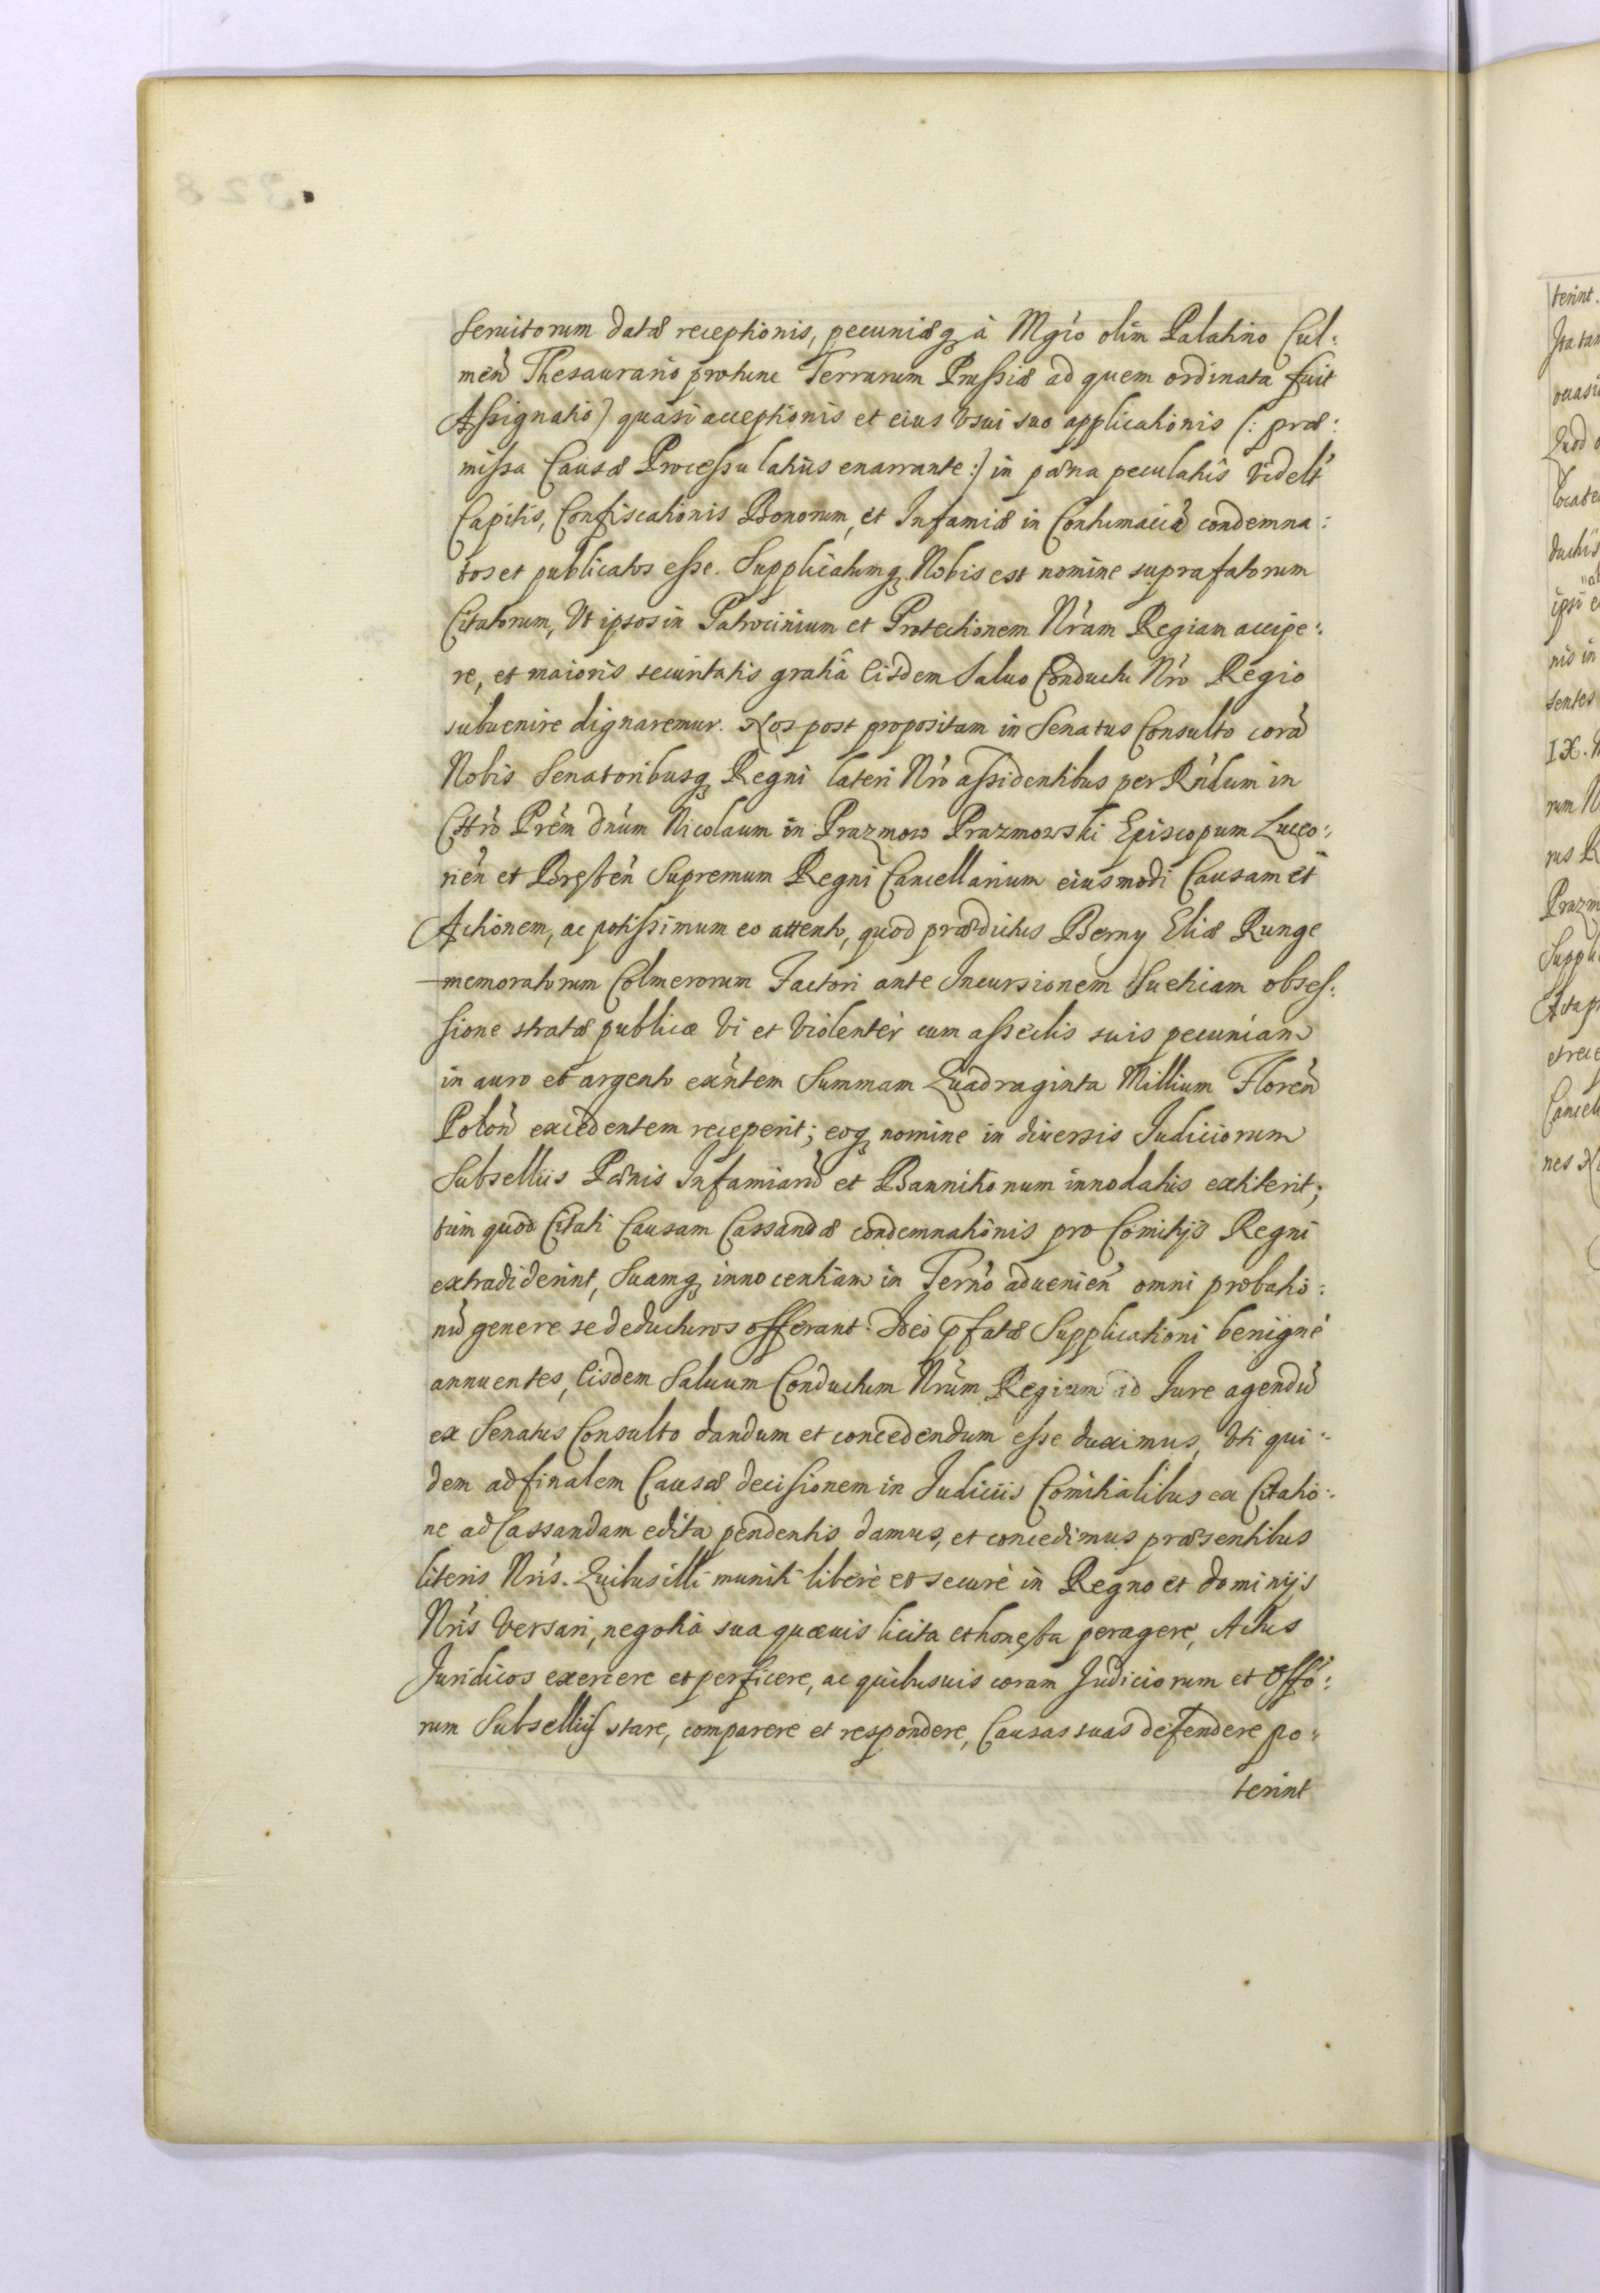 Seruitorum datæ receptionis, pecuniæq; à Mgco olim Palatino Cul:
men Thesaurario protunc Terrarum Prussiæ ad quem ordinata fuit
Assignatio) quasi acceptionis et eius Vsui suo applicationis (: præ:
missa Causæ Processu latius enarrante :) in pœna peculatus Videlt
Capitis, Confiscationis Bonorum, et Infamiæ in Contumaciã condemna:
tos et publicatos esse. Supplicatumq; Nobis est nomine suprafatorum
Citatorum, Vt ipsos in Patrocinium et Protectionem Nram Regiam accipe:
re, et maioris securitatis gratiâ Eisdem Saluo Conductu Nro Regio
subuenire dignaremur. Nos post propositam in Senatus Consulto corã
Nobis Senatoribusq; Regni lateri Nro assidentibus per Rndum in
Chro Prem dnum Nicolaum in Prazmow Prazmowski Episcopum Luceo:
rien et Bresten Supremum Regni Cancellarium eiusmodi Causam et
Actionem, ac potissimum eo attento, quod prædictus Berny Eliæ Runge
memoratorum Colmerorum Factori ante Incursionem Sueticam obses:
sione stratæ publicæ Vi et Violenter cum asseclis suis pecuniam
in auro et argento exntem Summam Quadraginta Millium Floren
Polon excedentem receperit; eoq; nomine in diuersis Judiciorum
Subselliis Pœnis Infamiarũ et Bannitionum innodatus extiterit;
tum quod Citati Causam Cassandæ condemnationis pro Comitijs Regni
extradiderint, Suamq; innocentiam in Termo aduenien omni probatio:
nũ genere se deducturos offerant. Ideo pfatæ Supplicationi benigne
annuentes, Eisdem Saluum Conductum Nrum Regium ad Jure agendũ
ex Senatus Consulto dandum et concedendum esse duximus, Vti qui:
dem ad finalem Causæ decisionem in Judiciis Comitialibus ex Citatio:
ne ad Cassandam edita pendentis damus, et concedimus præsentibus
literis Nris. Quibus illi muniti libere et secure in Regno et dominijs
Nris Versari, negotia sua quæuis licita et honesta peragere, Actus
Juridicos exercere et perficere, ac quibusuis coram Judiciorum et Offo:
rum Subsellijs stare, comparere et respondere, Causas suas defendere po:
terint